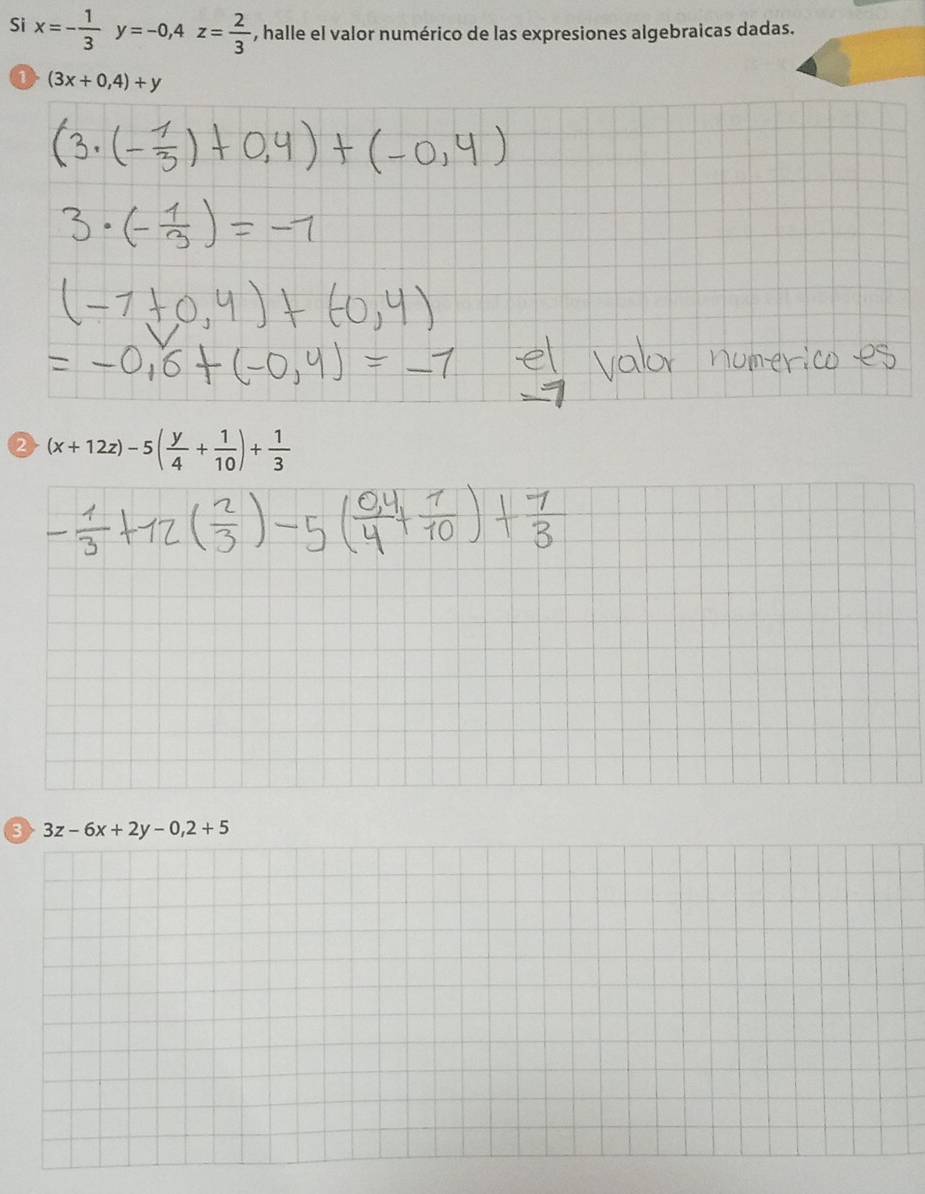 Si x = -1/3 y = -0,4 z = 2/3, halle el valor numérico de las expresiones algebraicas dadas.
1 (3x + 0,4) + y
(3·(-1/3)+0,4)+(-0,4)
3·(-1/3)=-1
(-1+0,4)+(-0,4)
=-0,6+(-0,4)=-1 el valor numerico es
-1
2 (x + 12z) - 5(y/4 + 1/10) + 1/3
-1/3+12(2/3)-5(0,4/4+1/10)+1/3
3 3z - 6x + 2y - 0,2 + 5